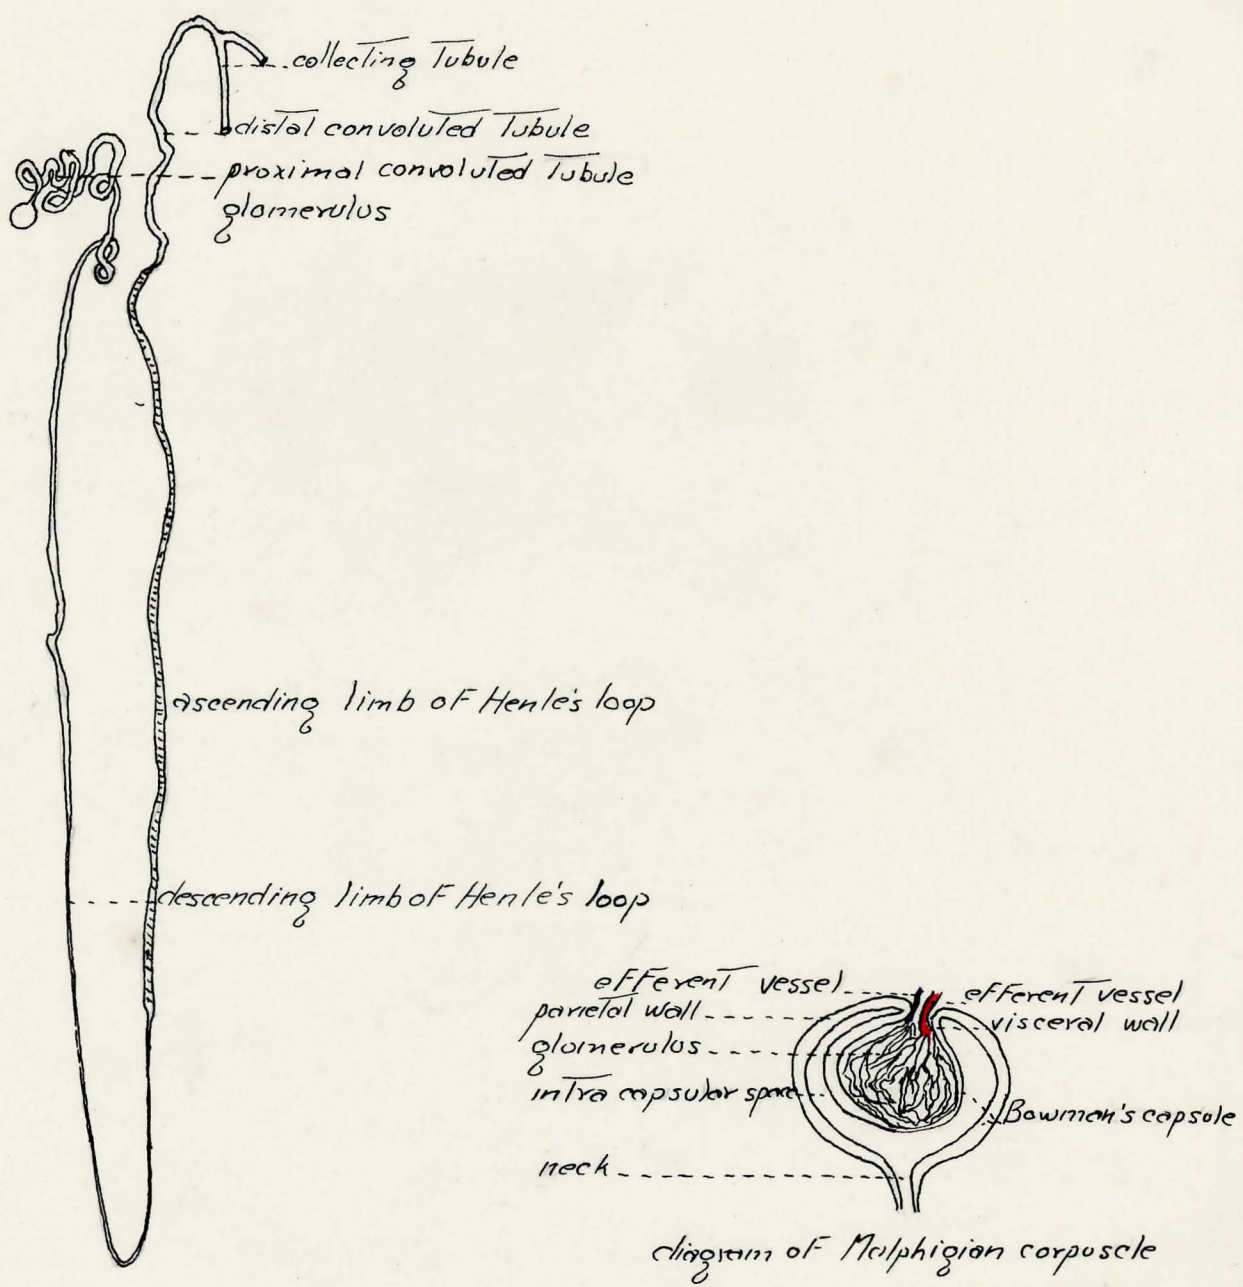 collecting Tubule
distal convoluted Tubule
proximal convoluted Tubule
glomerulus
ascending limb of Henle's loop
descending limb of Henle's loop
efferent vessel
parietal wall
glomerulus
intra capsular space
neck
efferent vessel
visceral wall
Bowman's capsule
diagram of Malphigian corpuscle